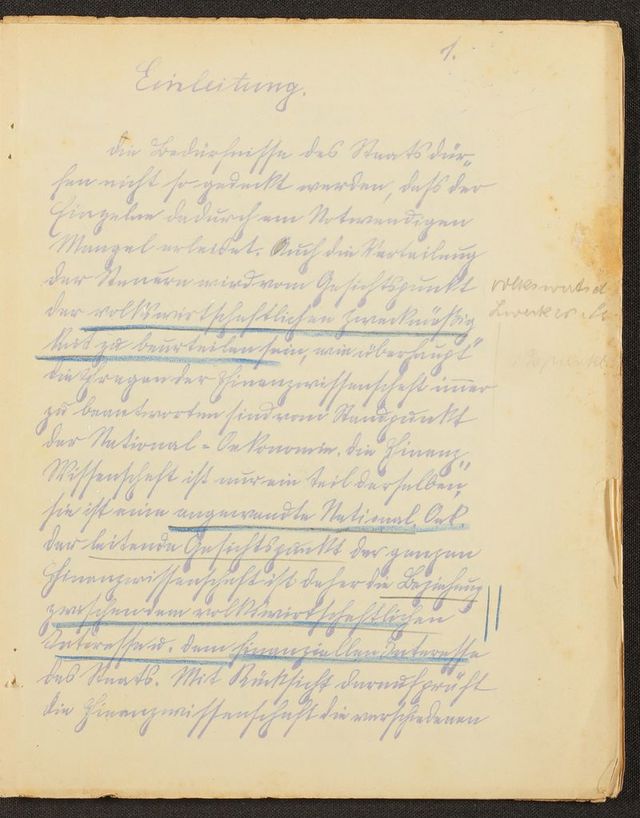 1.
Einleitung.
Die Bedürfnisse des Staats dür„
fen nicht so gedeckt werden, daß der
Einzelne dadurch am Notwendigen
Mangel erleidet. Auch die Verteilung
der Steuern wird vom Gesichtspunkt
der volkswirtschaftlichen Zweckmäßig
keit zu beurteilen sein, wie überhaupt
die Fragen der Finanzwissenschaft immer
zu beantworten sind vom Standpunkt
der National-Oekonomie. Die Finanz„
Wissenschaft ist nur ein Teil derselben,
sie ist eine angewandte National Oek
Der leitende Gesichtspunkt der ganzen
Finanzwissenschaft ist daher die Beziehung
zwischen dem volkswirtschaftlichen
Interesse u. dem finanziellen Interesse
des Staats. Mit Rücksicht darauf prüft
die Finanzwissenschaft die verschiedenen